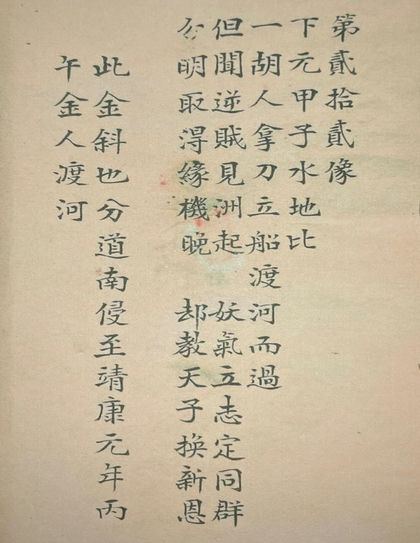 第貳拾貳像
下元甲子水地比
一胡人拿刀立船渡河而過
但聞逆賊見洲起 妖氣立志定同群
分明取得緣機晚 却教天子換新恩
此金斜也分道南侵至靖康元年丙
午金人渡河